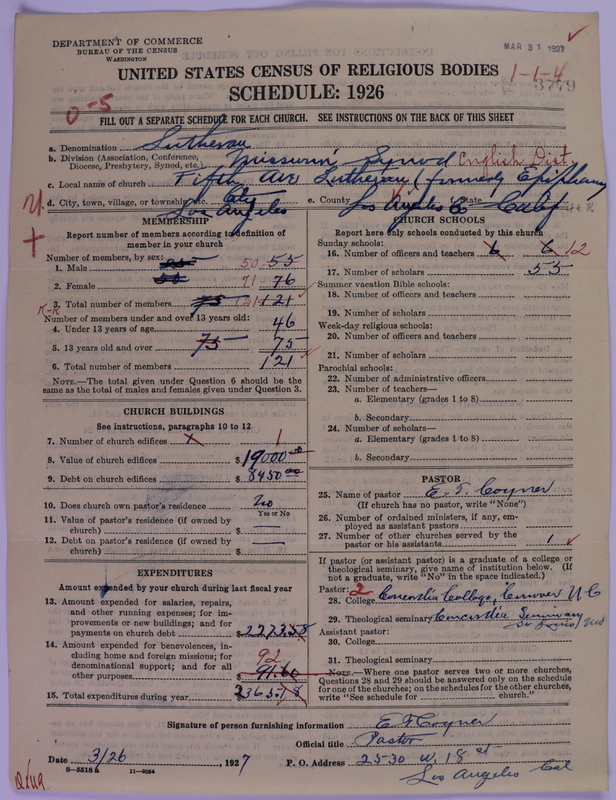 DEPARTMENT OF COMMERCE
BUREAU OF THE CENSUS
WASHINGTON
MAR 31 1927
UNITED STATES CENSUS OF RELIGIOUS BODIES
1-1-4
3779
SCHEDULE: 1926
0-5
FILL OUT A SEPARATE SCHEDULE FOR EACH CHURCH. SEE INSTRUCTIONS ON THE BACK OF THIS SHEET
a. Denomination Lutheran
b. Division (Association, Conference, Diocese, Presbytery, Synod, etc.) Missouri Synod English Dist.
c. Local name of church Fifth Ave Lutheran (formerly Epiphany
d. City, town, village, or township, etc. City Los Angeles
e. County Los Angeles Co State Calif
MEMBERSHIP
Report number of members according to definition of member in your church
Number of members, by sex:
1. Male 50 55
2. Female 50 71 76
3. Total number of members 75 121 121
Number of members under and over 13 years old:
4. Under 13 years of age 46
5. 13 years old and over 75 75
6. Total number of members 121
NOTE.—The total given under Question 6 should be the same as the total of males and females given under Question 3.
CHURCH BUILDINGS
See instructions, paragraphs 10 to 12
7. Number of church edifices 1
8. Value of church edifices $19000.00
9. Debt on church edifices $8450.00
10. Does church own pastor's residence No
Yes or No
11. Value of pastor's residence (if owned by church) $
12. Debt on pastor's residence (if owned by church) $
EXPENDITURES
Amount expended by church during last fiscal year
13. Amount expended for salaries, repairs, and other running expenses; for improvements or new buildings; and for payments on church debt $
14. Amount expended for benevolences, including home and foreign missions; for denominational support; and for all other purposes 92 $91.60
15. Total expenditures during year $
CHURCH SCHOOLS
Report here only schools conducted by this church
Sunday schools:
16. Number of officers and teachers 6 6 12
17. Number of scholars 55
Summer vacation Bible schools:
18. Number of officers and teachers
19. Number of scholars
Week-day religious schools:
20. Number of officers and teachers
21. Number of scholars
Parochial schools:
22. Number of administrative officers
23. Number of teachers—
a. Elementary (grades 1 to 8)
b. Secondary
24. Number of scholars—
a. Elementary (grades 1 to 8)
b. Secondary
PASTOR
25. Name of pastor E. F. Coyner
(If church has no pastor, write "None")
26. Number of ordained ministers, if any, employed as assistant pastors
27. Number of other churches served by the pastor or his assistants 1
If pastor (or assistant pastor) is a graduate of a college or theological seminary, give name of institution below. (If not a graduate, write "No" in the space indicated.)
Pastor: 2
28. College Concordia College, Conover N C
29. Theological seminary Concordia Seminary St Louis, Mo
Assistant pastor:
30. College
31. Theological seminary
NOTE.—Where one pastor serves two or more churches, Questions 28 and 29 should be answered only on the schedule for one of the churches; on the schedules for the other churches, write "See schedule for church."
Signature of person furnishing information E F Coyner
Official title Pastor
Date 3/26, 1927
P. O. Address 2530 W. 18 st
Los Angeles Cal
8—5518 a 11—9084